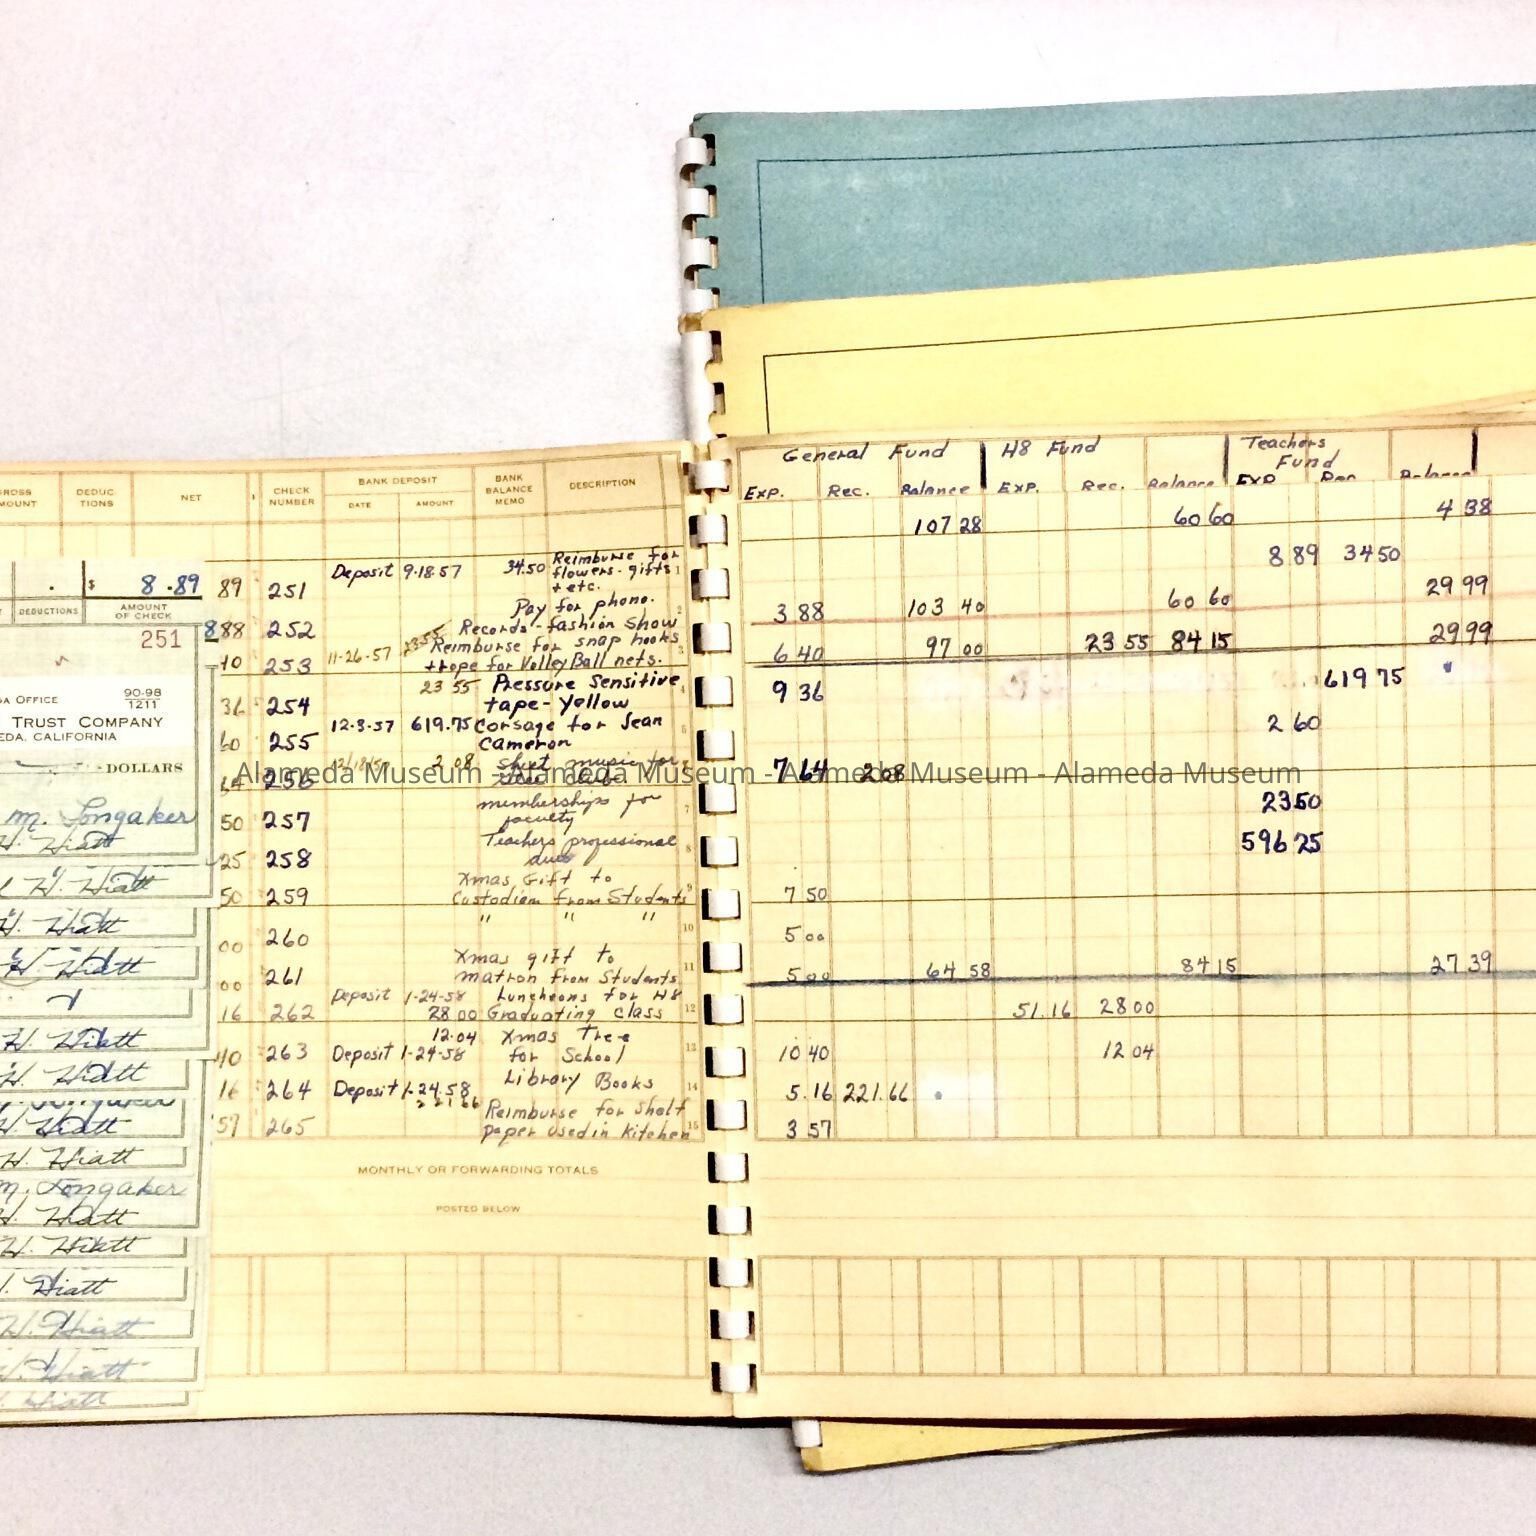 GROSS AMOUNT DEDUCTIONS NET CHECK NUMBER BANK DEPOSIT DATE AMOUNT BANK BALANCE MEMO DESCRIPTION
General Fund H8 Fund Teachers Fund
Exp. Rec. Balance Exp. Rec. Balance Exp Rec Balance
107 28 60 60 4 38
$ 8.89
DEDUCTIONS AMOUNT OF CHECK
251
OFFICE 90-98
1211
TRUST COMPANY
EDA, CALIFORNIA
DOLLARS
89 251 Deposit 9-18-57 34.50 Reimburse for
flowers - gifts
+ etc.
8 89 34 50
888 252 Pay for phone.
3 88 103 40 60 60 29 99
Records - fashion show
253 11-26-57 23 55 Reimburse for snap hooks
+ rope for Volley Ball nets.
6 40 97 00 23 55 84 15 29 99
36 254 23 55 Pressure Sensitive
tape - Yellow
9 36 619 75
60 255 12-3-57 619.75 Corsage for Jean
Cameron
2 60
64 256 2 08 sheet music for
7 64 2 08
Alameda Museum - Alameda Museum - Alameda Museum - Alameda Museum
50 257 memberships for
faculty
23 50
25 258 Teachers professional
dues
596 25
50 259 Xmas Gift to
Custodian from Students
7 50
00 260 " " "
5 00
00 261 Xmas gift to
matron from Students
5 00 64 58 84 15 27 39
16 262 Deposit 1-24-58 Luncheons for H8
28 00 Graduating class
51.16 28 00
40 263 Deposit 1-24-58 12.04 Xmas Tree
for School
10 40 12 04
16 264 Deposit 1-24-58 Library Books
221 66
5.16 221.66
57 265 Reimburse for shelf
paper used in kitchen
3 57
MONTHLY OR FORWARDING TOTALS
POSTED BELOW
M. Longaker
H. Hiatt
H. Hiatt
H. Hiatt
H. Hiatt
H. Hiatt
H. Hiatt
Hiatt
H. Hiatt
M. Longaker
H. Hiatt
H. Hiatt
Hiatt
H. Hiatt
H. Hiatt
Hiatt